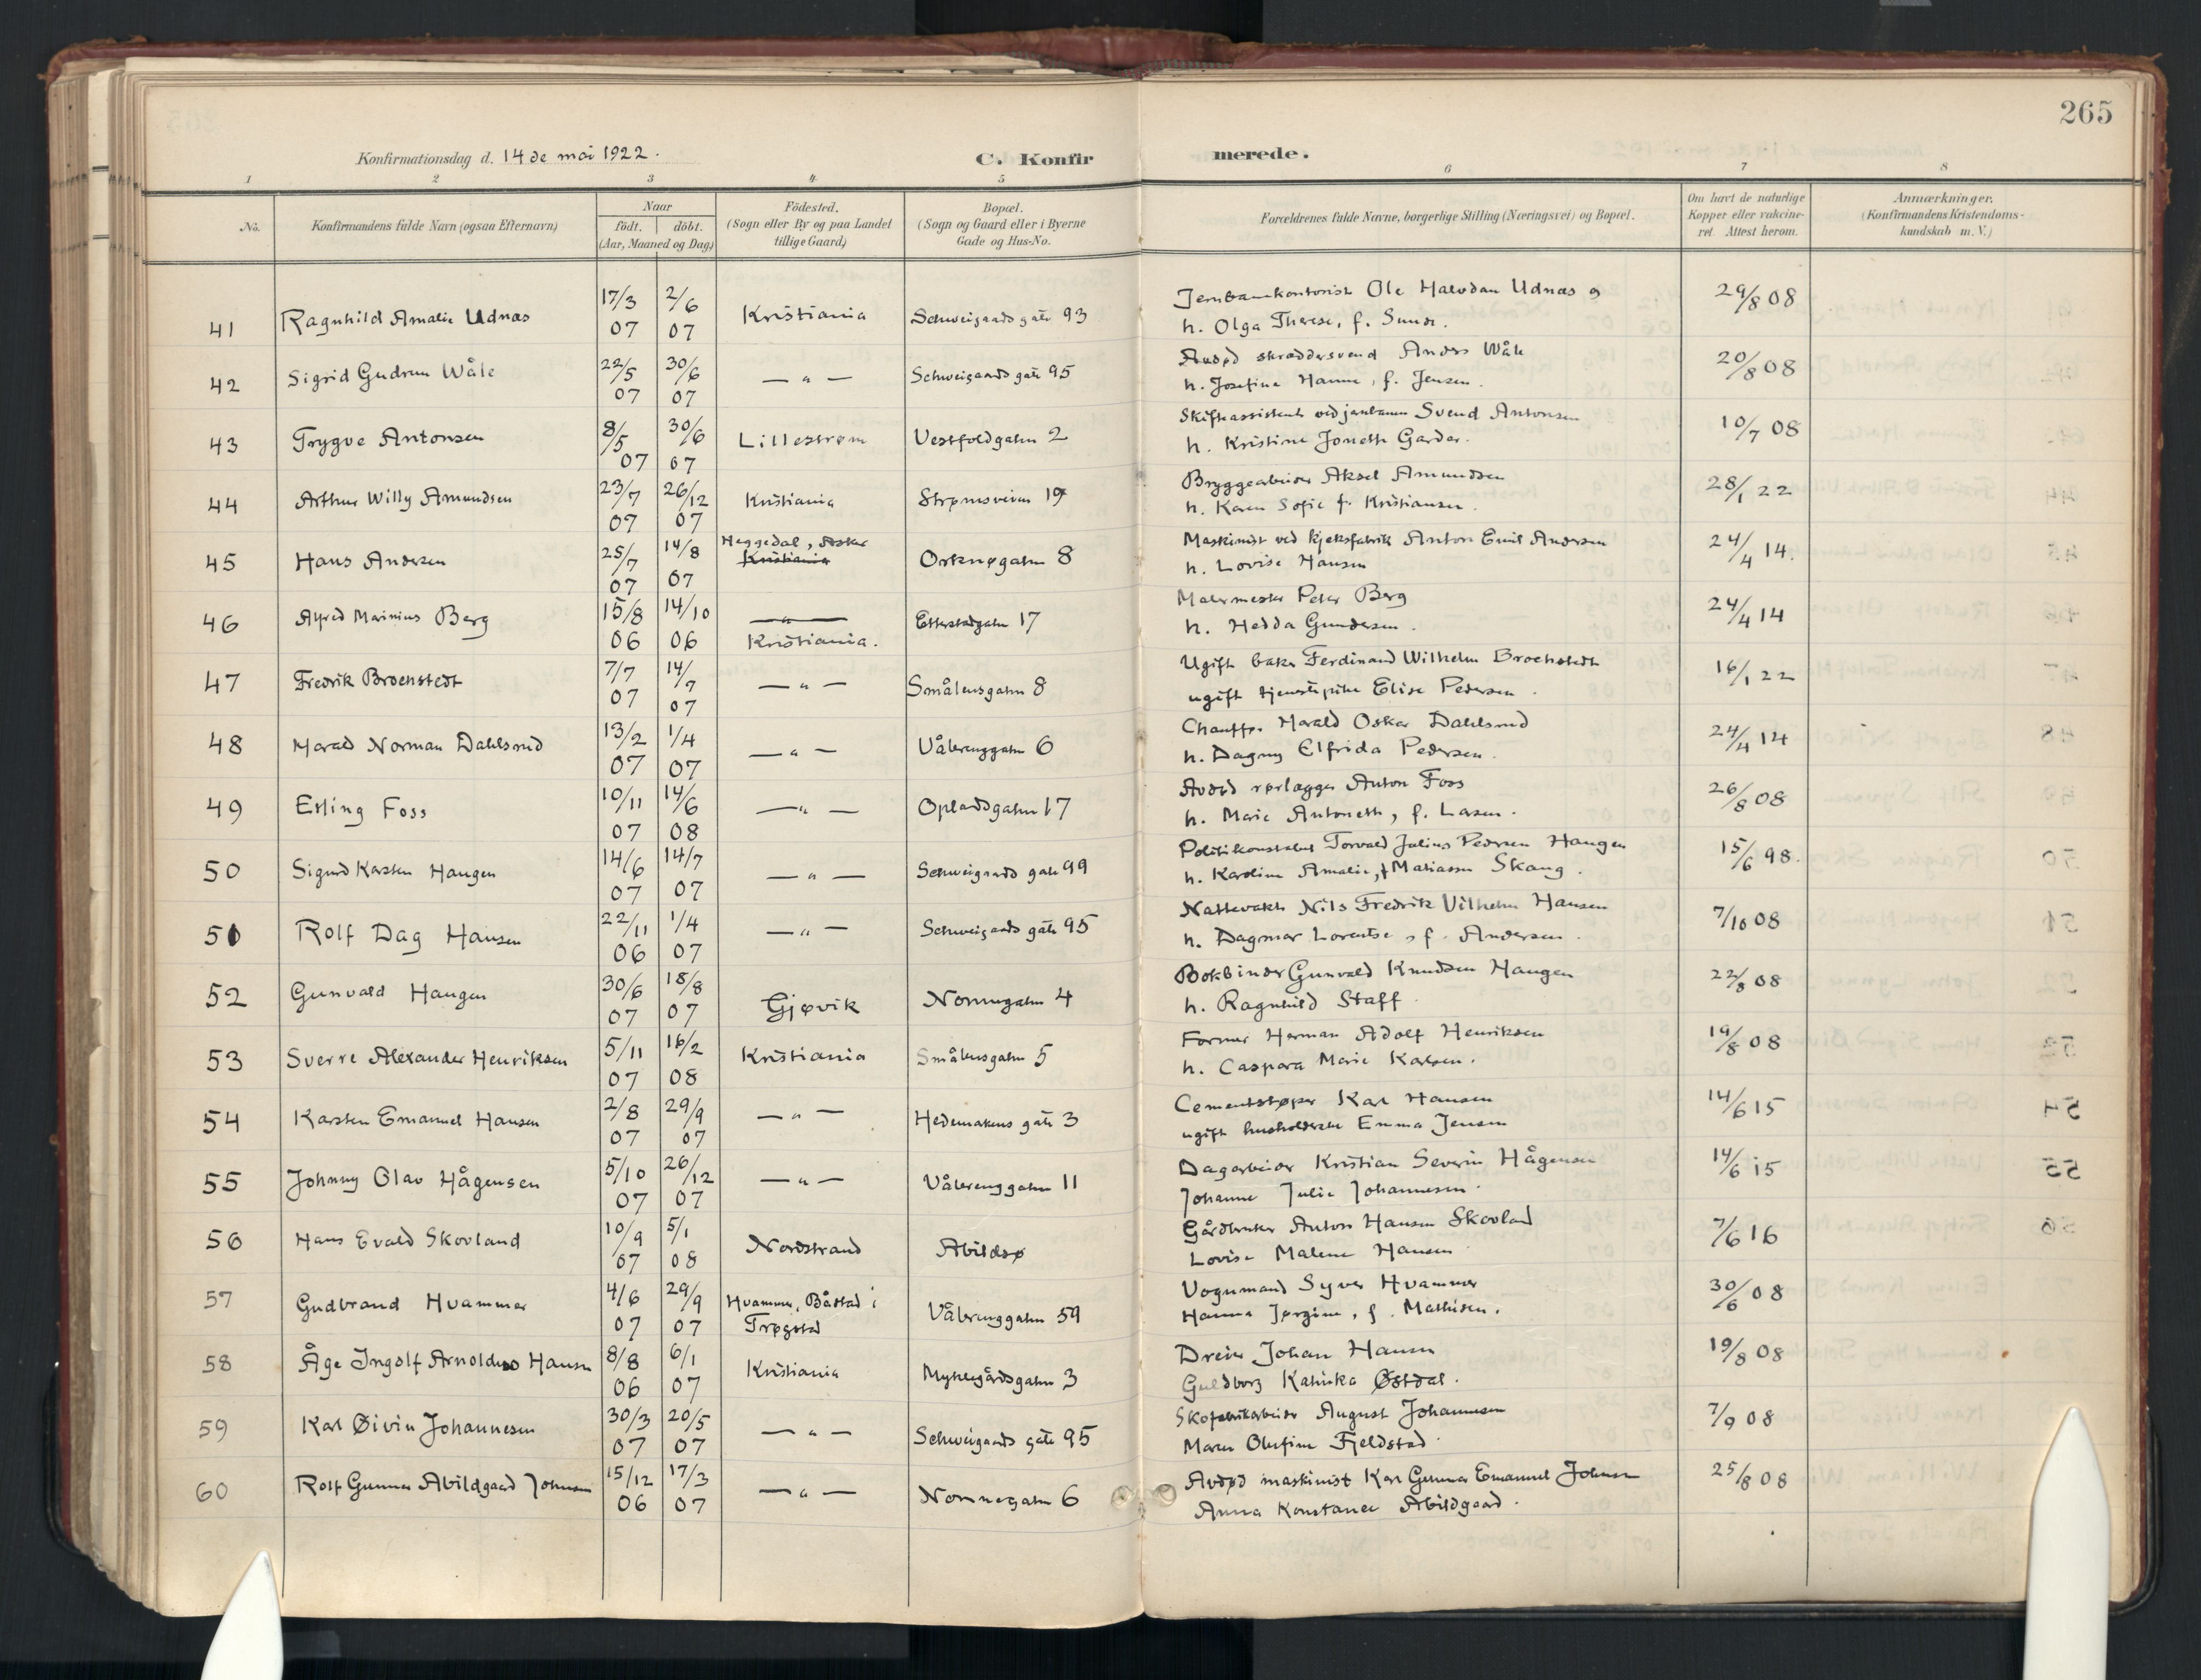 265
Konfirmationsdag d. 14de mai 1922.
C. Konfirmerede.
1 2 3 4 5 6 7 8
No.
Konfirmandens fulde Navn (ogsaa Efternavn)
Naar
födt. döbt.
(Aar, Maaned og Dag)
Födested.
(Sogn eller By og paa Landet
tillige Gaard)
Bopæl.
(Sogn og Gaard eller i Byerne
Gade og Hus-No.
Forældrenes fulde Navne, borgerlige Stilling (Næringsvei) og Bopæl.
Om havt de naturlige
Kopper eller vakcine-
ret. Attest herom.
Anmærkninger.
(Konfirmandens Kristendoms-
kundskab m. V.)
41 Ragnhild Amalie Udnæs 17/3 07 2/6 07 Kristiania Schweigaards gate 93 Jernbanekontorist Ole Halvdan Udnæs og 29/8 08
h. Olga Therese, f. Sunde.
42 Sigrid Gudrun Wåle 22/5 07 30/6 07 — " — Schweigaards gate 95 Avdød skræddersvend Anders Wåle 20/8 08
h. Josefine Hanne, f. Jensen.
43 Trygve Antonsen 8/5 07 30/6 07 Lillestrøm Vestfoldgaten 2 Skifteassistent ved jernbanen Svend Antonsen 10/7 08
h. Kristine Jonette Garder.
44 Arthur Willy Amundsen 23/7 07 26/12 07 Kristiania Strømsveien 19 Bryggearbeider Aksel Amundsen 28/1 22
h. Karen Sofie f. Kristiansen.
45 Hans Andersen 25/7 07 14/8 07 Heggedal, Asker Kristiania Orknøgaten 8 Maskinist ved kjeksfabrik Anton Emil Andersen 24/4 14.
h. Lovise Hansen
46 Alfred Marinius Berg 15/8 06 14/10 06 — " — Kristiania. Etterstadgaten 17 Malermester Peter Berg 24/4 14
h. Hedda Gundersen.
47 Fredrik Broenstedt 7/7 07 14/7 07 — " — Smålensgaten 8 Ugift baker Ferdinand Wilhelm Brochstedt 16/1 22
ugift tjenestepike Elise Pedersen.
48 Harald Norman Dahlsrud 13/2 07 1/4 07 — " — Vålerenggaten 6 Chauffør Harald Oskar Dahlsrud 24/4 14
h. Dagny Elfrida Pedersen.
49 Erling Foss 10/11 07 14/6 08 — " — Oplandsgaten 17 Avdød rørlægger Anton Foss 26/8 08
h. Marie Antonette, f. Larsen.
50 Sigurd Karsten Haugen 14/6 07 14/7 07 — " — Schweigaards gate 99 Politikonstabel Torvald Julius Pedersen Haugen 15/6 98.
h. Karoline Amalie, f. Matiasson Skaug.
51 Rolf Dag Hansen 22/11 06 1/4 07 — " — Schweigaards gate 95 Nattevakt Nils Fredrik Vilhelm Hansen 7/10 08
h. Dagmar Lorentse, f. Andersen.
52 Gunvald Haugen 30/6 07 18/8 07 Gjøvik Nonnegaten 4 Bokbinder Gunvald Knudsen Haugen 22/8 08
h. Ragnhild Staff
53 Sverre Alexander Henriksen 5/11 07 16/2 08 Kristiania Smålensgaten 5 Former Herman Adolf Henriksen 19/8 08
h. Caspara Marie Karlsen.
54 Karsten Emanuel Hansen 2/8 07 29/9 07 — " — Hedemarkens gate 3 Cementstøper Karl Hansen 14/6 15
ugift husholderske Emma Jensen
55 Johnny Olav Hågensen 5/10 07 26/12 07 — " — Vålerenggaten 11 Dagarbeider Kristian Severin Hågensen 14/6 15
Johanne Julie Johannesen.
56 Hans Evald Skovland 10/9 07 5/1 08 Nordstrand Abildsø Gårdbruker Anton Hansen Skovland 7/6 16
Lovise Malene Hansen
57 Gudbrand Hvammer 4/6 07 29/9 07 Hvammer, Båstad i Trøgstad Vålerenggaten 59 Vognmand Syver Hvammer 30/6 08
Hanna Jørgine, f. Mathisen.
58 Åge Ingolf Arnoldus Hansen 8/8 06 6/1 07 Kristiania Myklegårdsgaten 3 Dreier Johan Hansen 19/8 08
Guldborg Katinka Østdal.
59 Karl Øivin Johannesen 30/3 07 20/5 07 — " — Schweigaards gate 95 Skofabrikarbeider August Johannesen 7/9 08
Maren Olufine Fjeldstad.
60 Rolf Gunnar Abildgaard Johnsen 15/12 06 17/3 07 — " — Nonnegaten 6 Avdød maskinist Karl Gunnar Emanuel Johnsen 25/8 08
Anna Konstance Abildgaard.